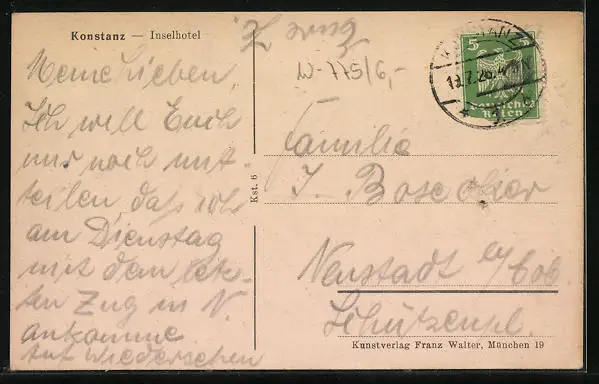 Konstanz — Inselhotel
Meine Lieben,
Ich will Euch
nur noch mit-
teilen daß ich
am Dienstag
mit dem letz-
ten Zug in N.
ankomme
auf Wiedersehen
W-775/6,-
KONSTANZ
19.7.26.
5
Deutsches
Reich
Kst. 6
Familie
J.
Neustadt b/Cob.
Schützenpl.
Kunstverlag Franz Walter, München 19